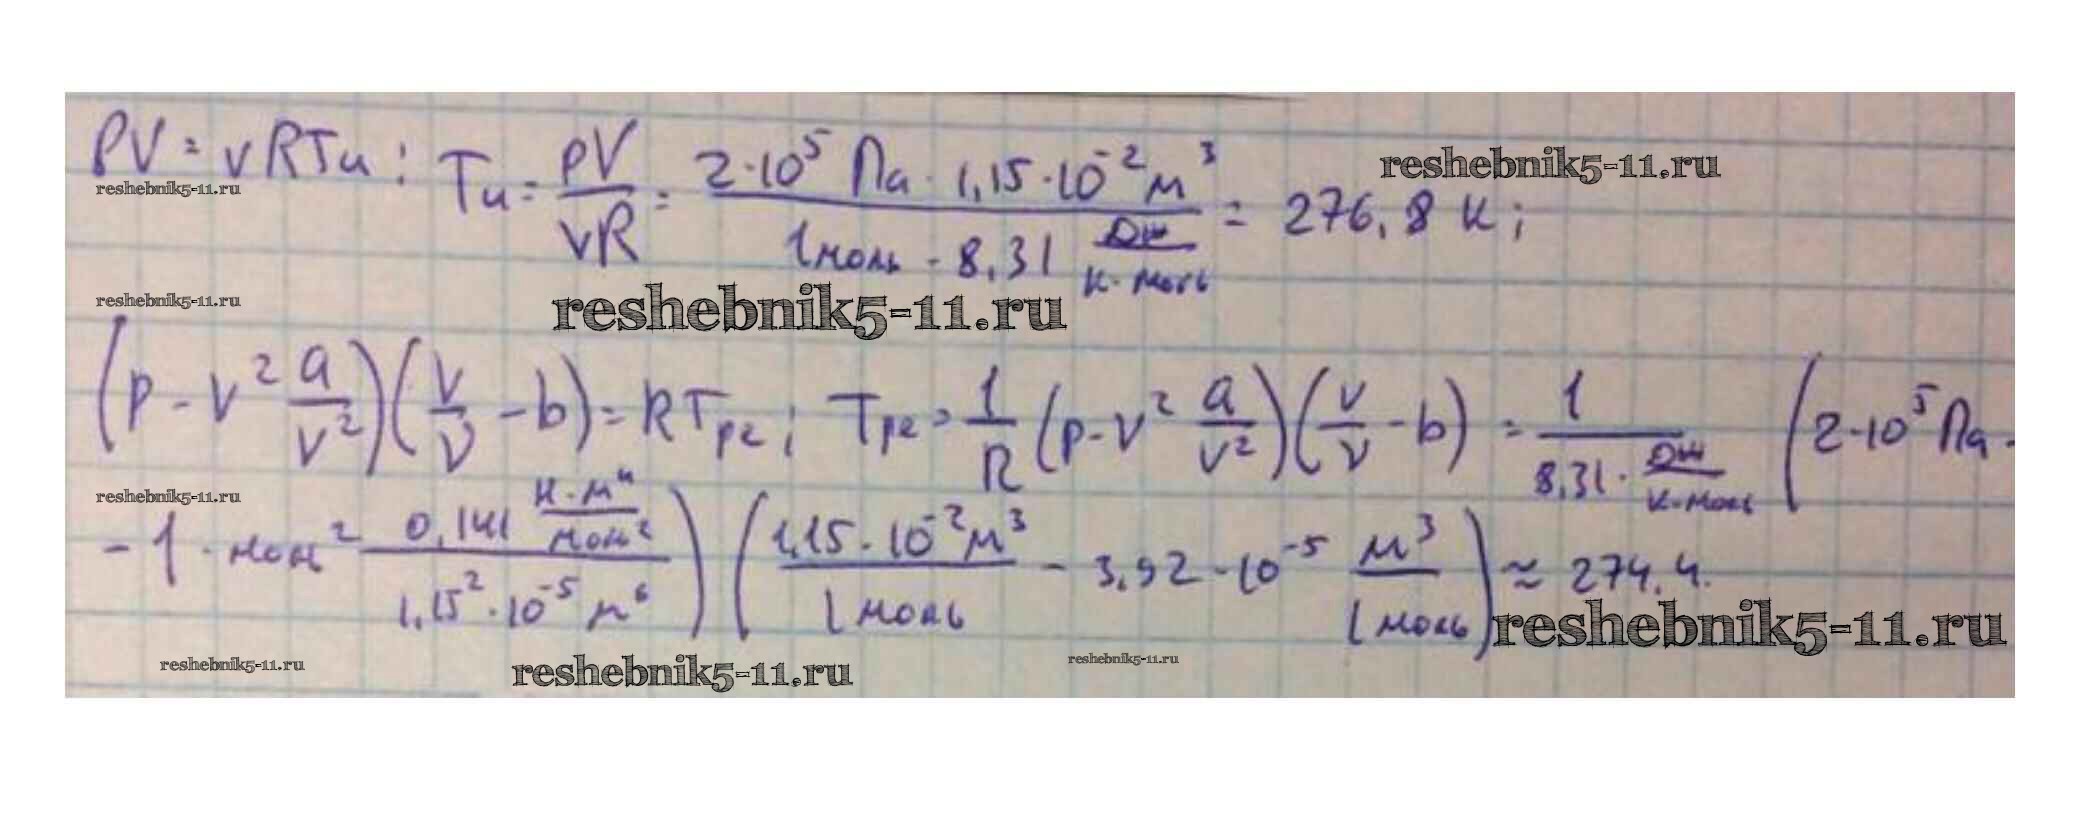 PV = νRTи; Tи = pV/νR = 2·10⁵ Па · 1,15·10⁻² м³ / 1 моль · 8,31 Дж/К·моль = 276,8 К;
reshebnik5-11.ru
reshebnik5-11.ru
reshebnik5-11.ru
reshebnik5-11.ru
(p - ν² a/V²)(V/ν - b) = RTрг; Tрг = 1/R (p - ν² a/V²)(V/ν - b) = 1/8,31 · Дж/К·моль (2·10⁵ Па -
reshebnik5-11.ru
- 1 · моль² 0,141 Н·м⁴/моль² / 1,15²·10⁻⁵ м⁶) (1,15·10⁻² м³/1 моль - 3,92·10⁻⁵ м³/1 моль) ≈ 274,4.
reshebnik5-11.ru
reshebnik5-11.ru
reshebnik5-11.ru
reshebnik5-11.ru